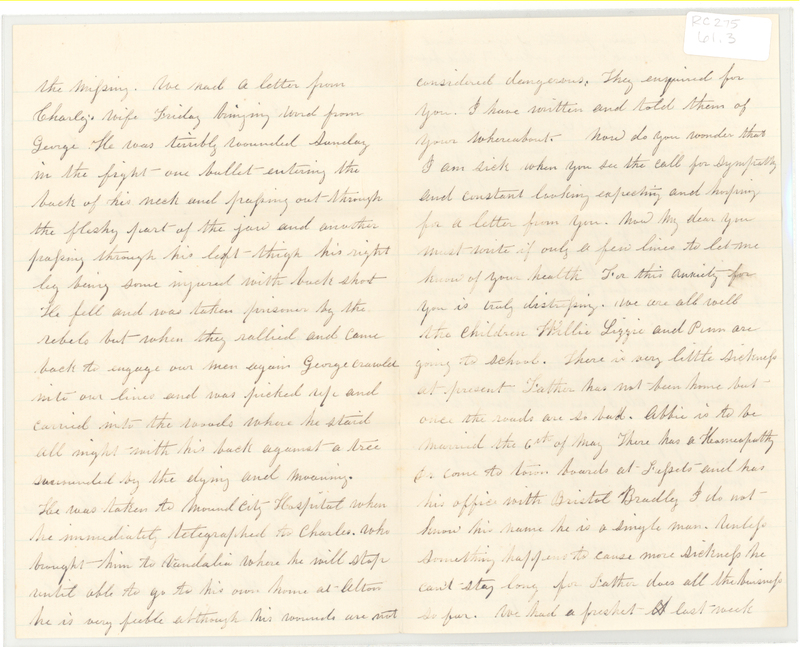 RC275
61.3
the missing. We had a letter from
Charleys wife Friday bringing word from
George. He was terribly wounded Sunday
in the fight one bullet entering the
back of his neck and passing out through
the fleshy part of the jaw and another
passing through his left thigh his right
leg being some injured with back shot
He fell and was taken prisoner by the
rebels but when they rallied and came
back to engage our men again George crawled
into our lines and was picked up and
carried into the woods where he staid
all night with his back against a tree
surrounded by the dying and moaning.
He was taken to Mound City Hospital when
he immediately telegraphed to Charles. who
brought him to Vandalia where he will stop
until able to go to his own home at Alton
he is very feeble although his wounds are not
considered dangerous. They enquired for
you. I have written and told them of
your whereabout. Now do you wonder that
I am sick when you see the call for sympathy
and constant looking expecting and hoping
for a letter from you. Now my dear you
must write if only a few lines to let me
know of your health For this anxiety for
you is truly distressing. We are all well
the children Willie Lizzie and Penn are
going to school. There is very little sickness
at present Father has not been home but
once the roads are so bad. Abbie is to be
married the 6st of May There has a Homeopathy
Dr come to town boards at and has
his office with Bristol Bradley I do not
know his name he is a single man. Unless
something happens to cause more sickness he
can't stay long for Father does all the business
so far. We had a freshet last week